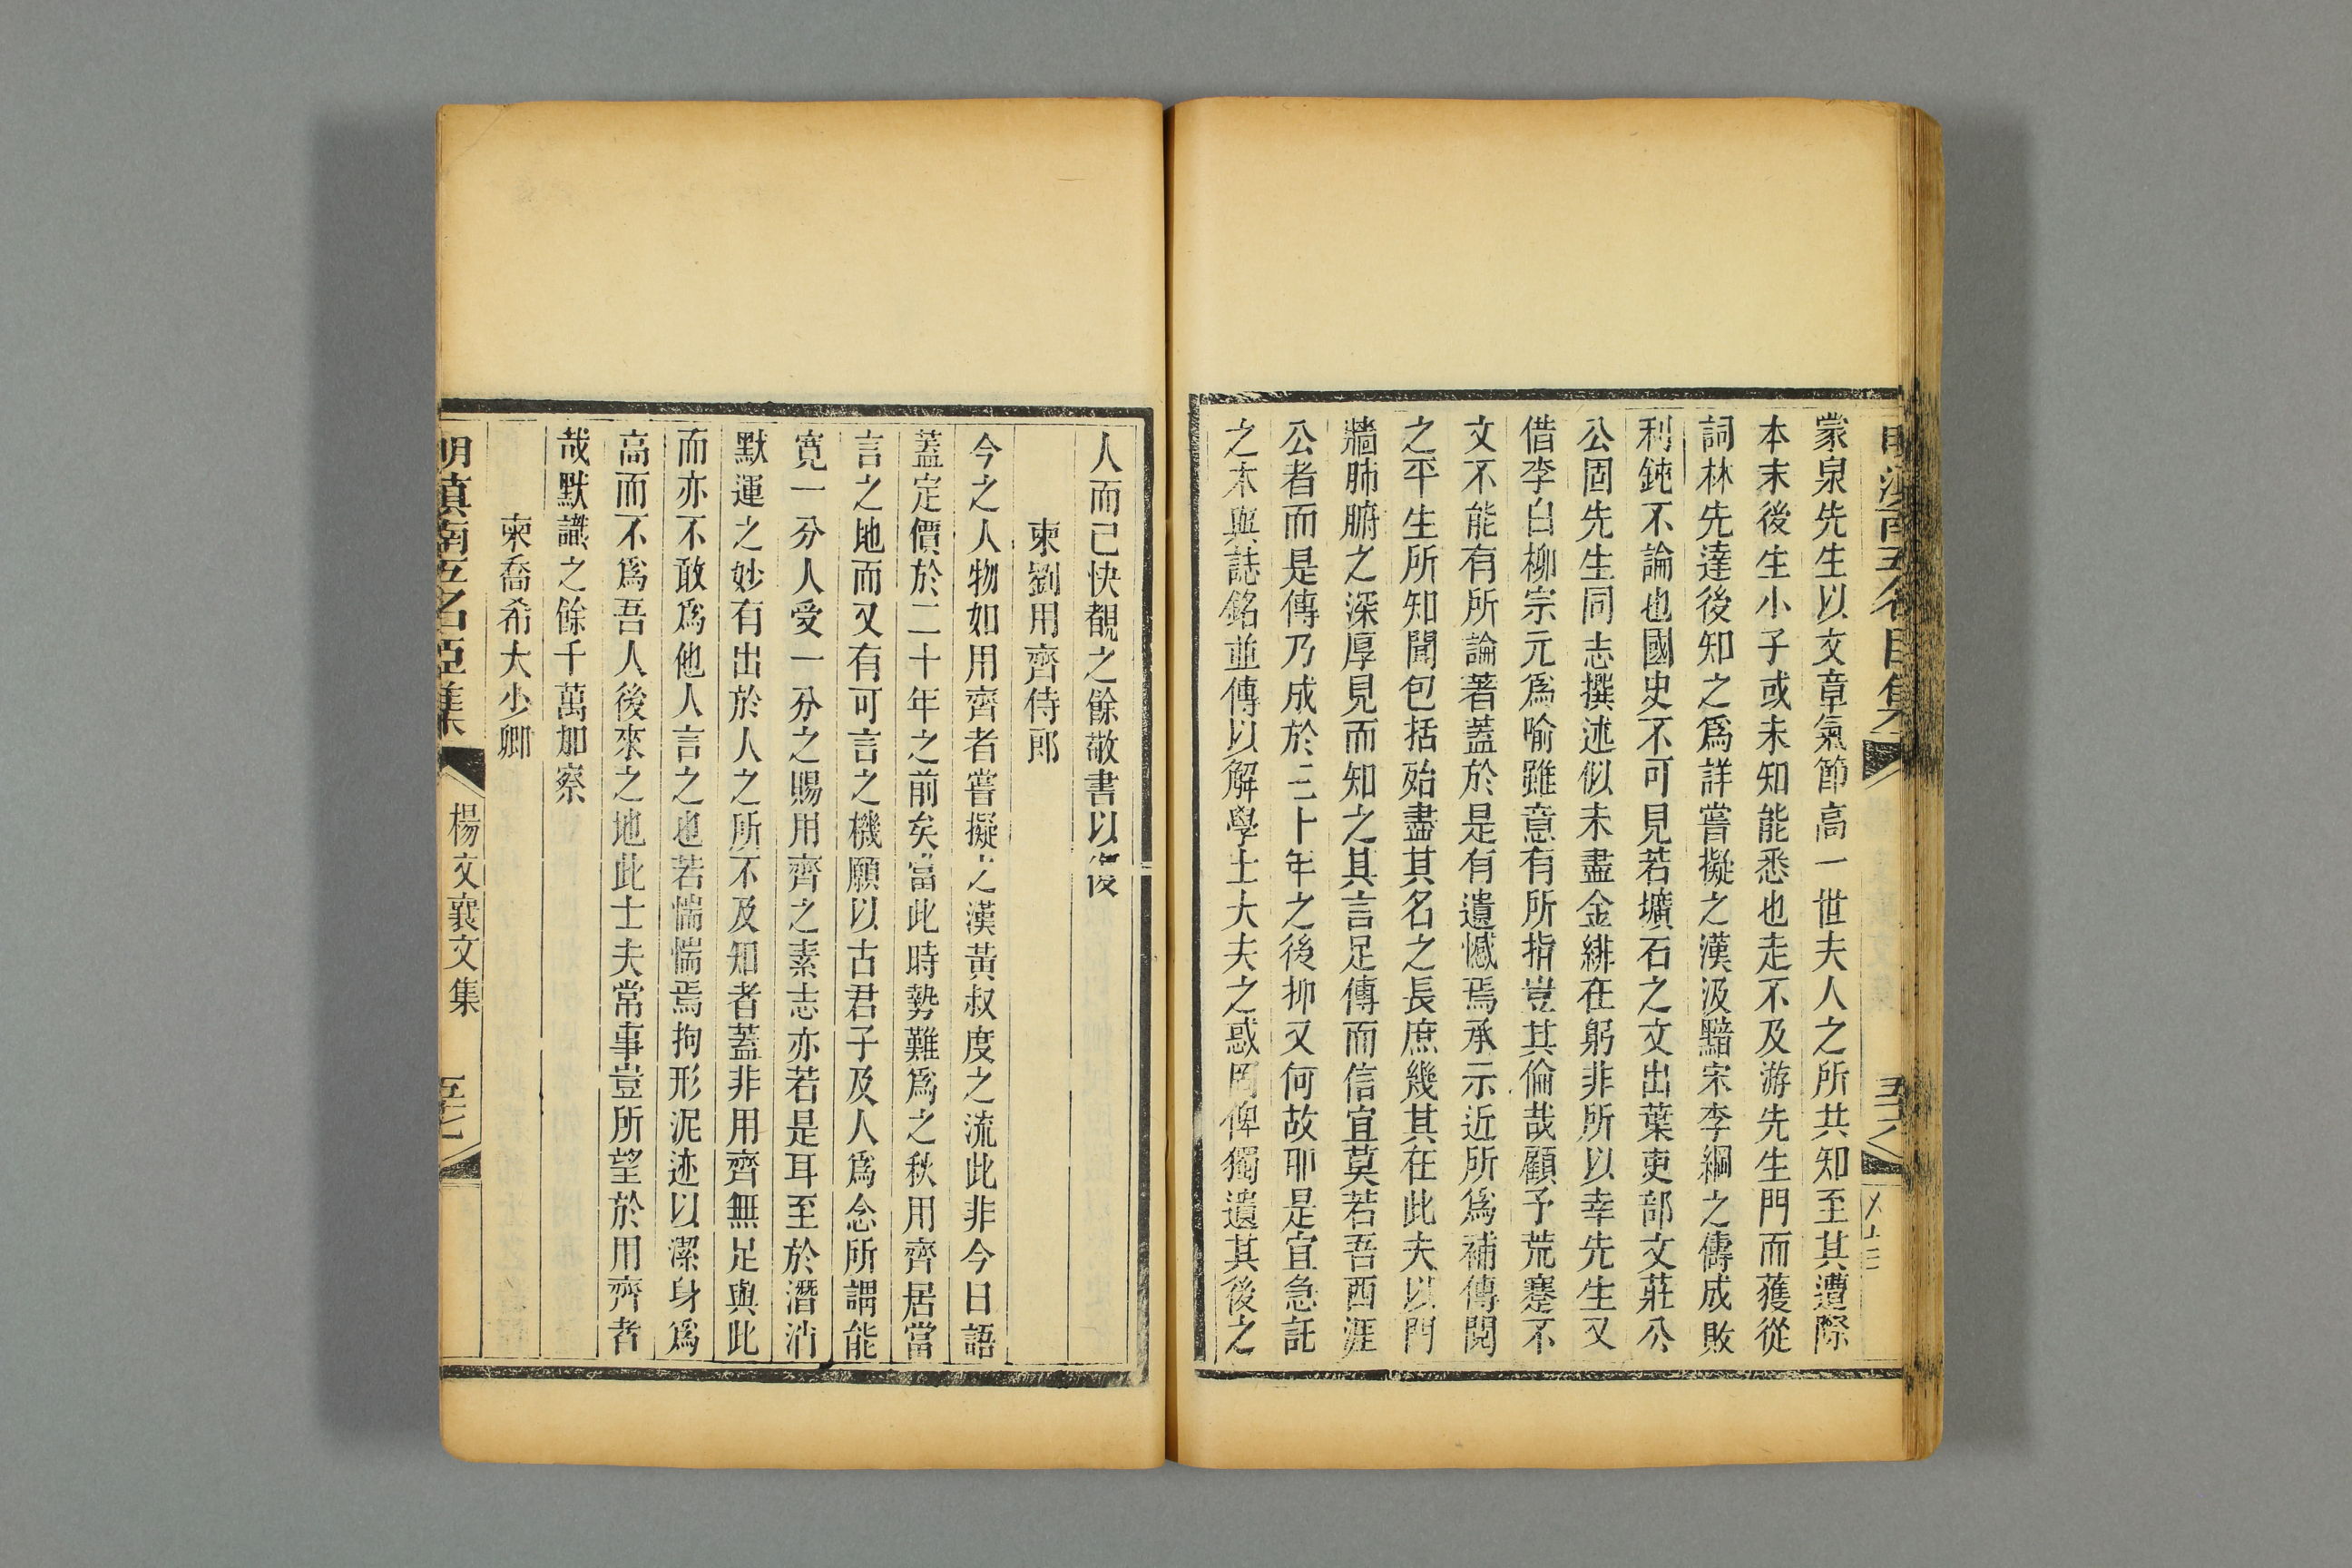 蒙泉先生以文章氣節高一世夫人之所共知至其遭際
本末後生小子或未知能悉也走不及游先生門而獲從
詞林先達後知之爲詳嘗擬之漢汲黯宋李綱之儔成敗
利鈍不論也國史不可見若壙石之文出葉吏部文莊公
公固先生同志撰述似未盡金緋在躬非所以幸先生又
借李白柳宗元爲喻雖意有所指豈其倫哉顧予荒蹇不
文不能有所論著蓋於是有遺憾焉承示近所爲補傳閱
之平生所知聞包括殆盡其名之長庶幾其在此夫以門
牆肺腑之深厚見而知之其言足傳而信宜莫若吾西涯
公者而是傳乃成於三十年之後抑又何故耶是宜急託
之木與誌銘並傳以解學士大夫之惑罔俾獨遺其後之
人而已快覩之餘敬書以復
柬劉用齊侍郎
今之人物如用齊者嘗擬之漢黃叔度之流此非今日語
蓋定價於二十年之前矣當此時勢難爲之秋用齊居當
言之地而又有可言之機願以古君子及人爲念所謂能
寬一分人受一分之賜用齊之素志亦若是耳至於潛消
默運之妙有出於人之所不及知者蓋非用齊無足與此
而亦不敢爲他人言之也若惴惴焉拘形泥迹以潔身爲
高而不爲吾人後來之地此士夫常事豈所望於用齊者
哉默識之餘千萬加察
柬喬希大少卿
明滇南五名臣集
楊文襄文集
五十七